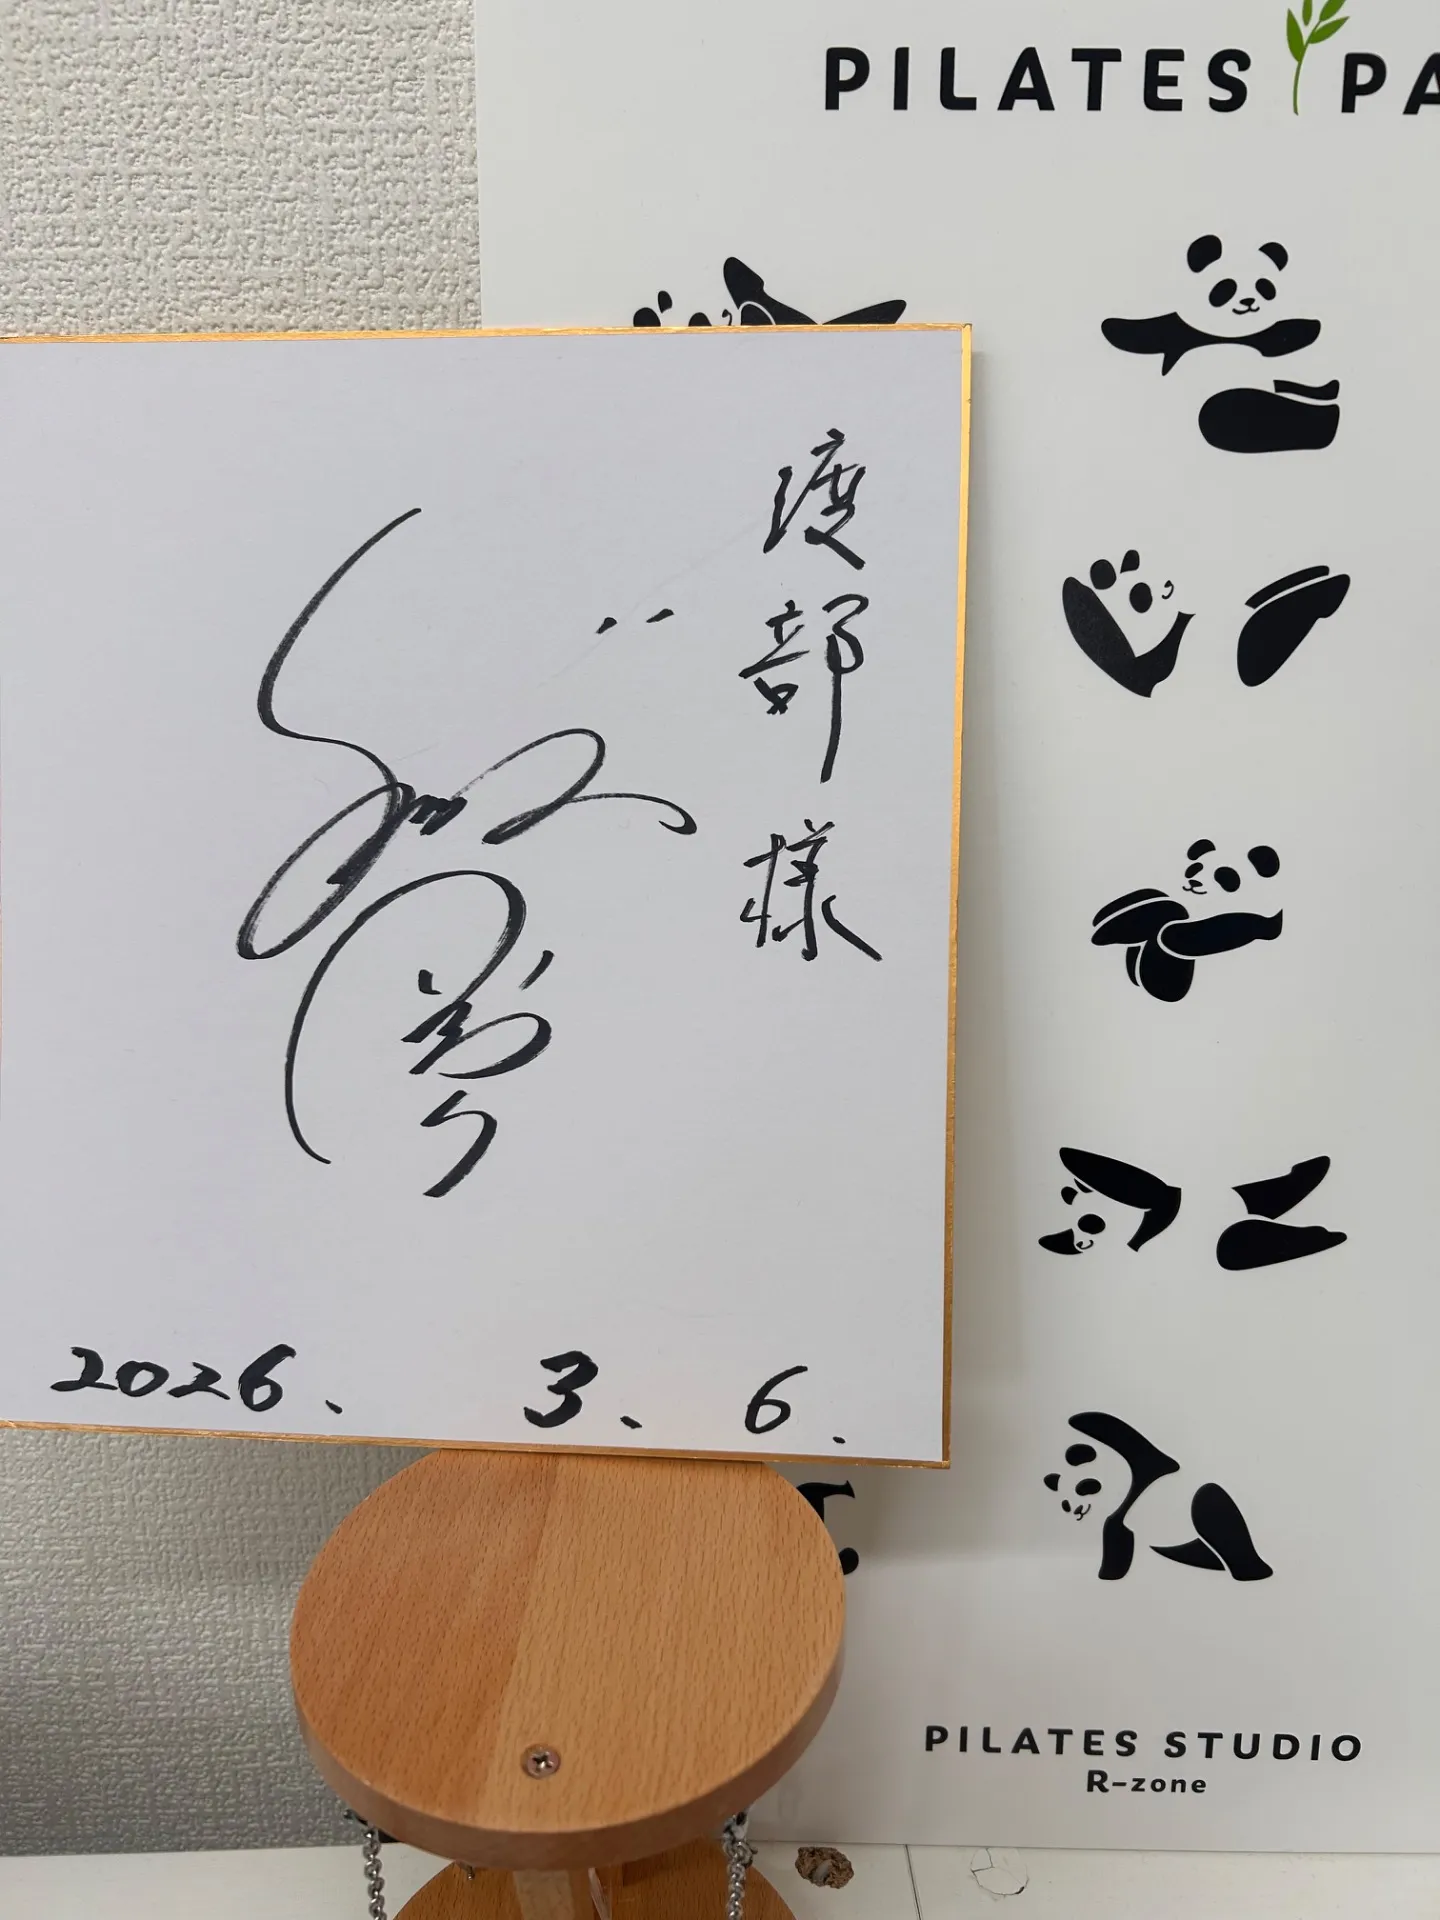 PILATES PA
渡部様
2026. 3. 6.
PILATES STUDIO
R-zone